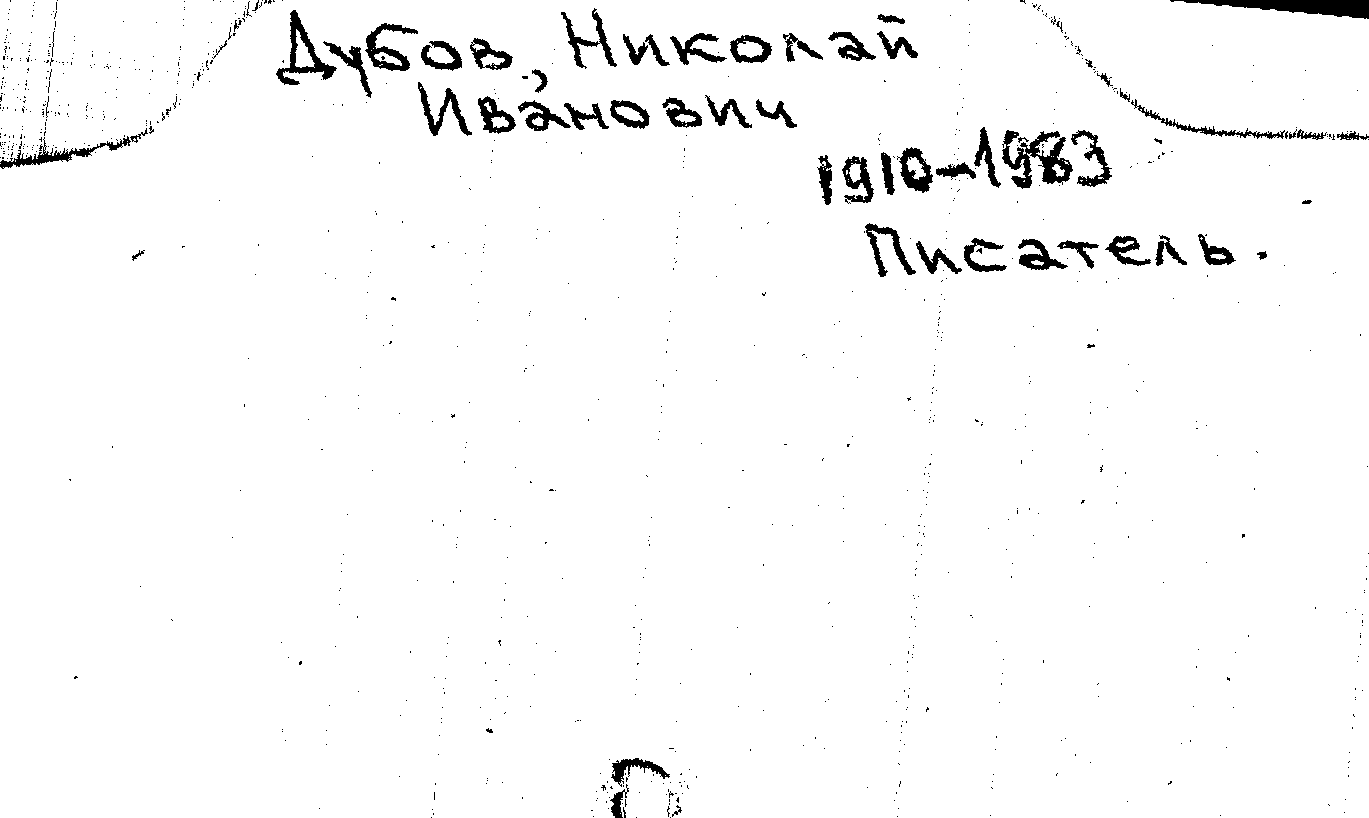 Дубов, Николай
Иванович
1910-1983
Писатель.